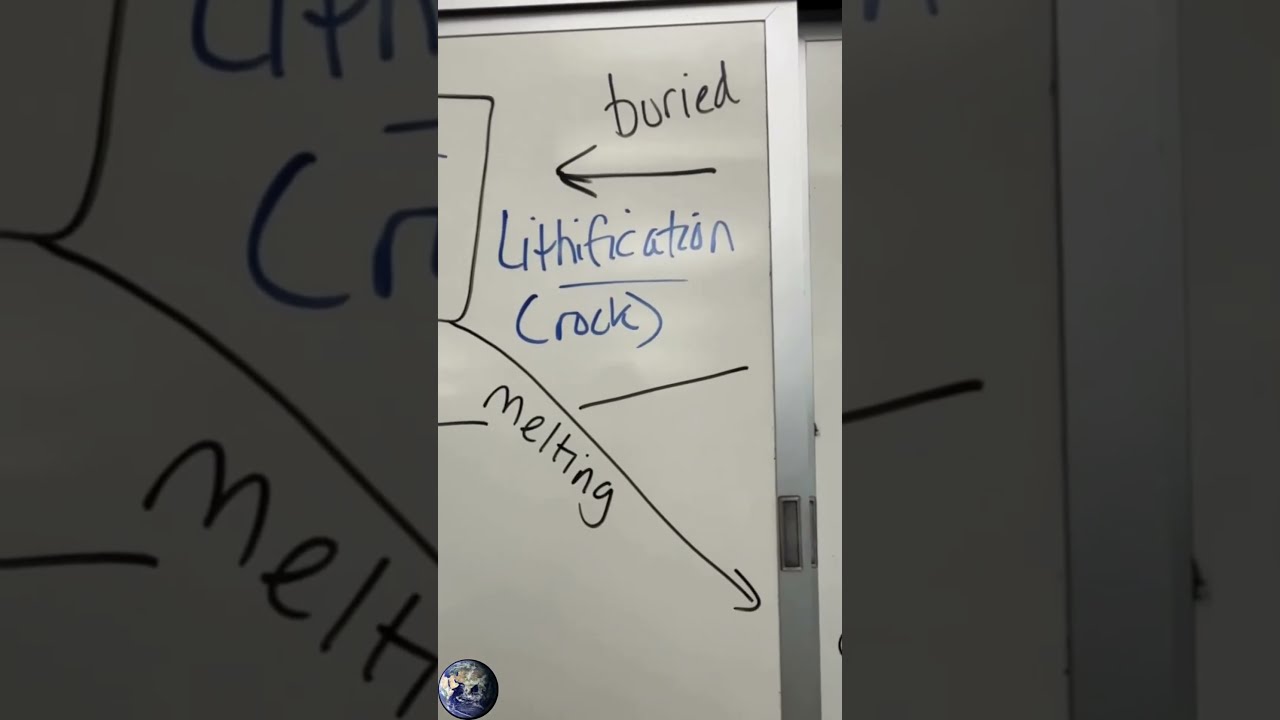 buried
Lithification
(rock)
Melting